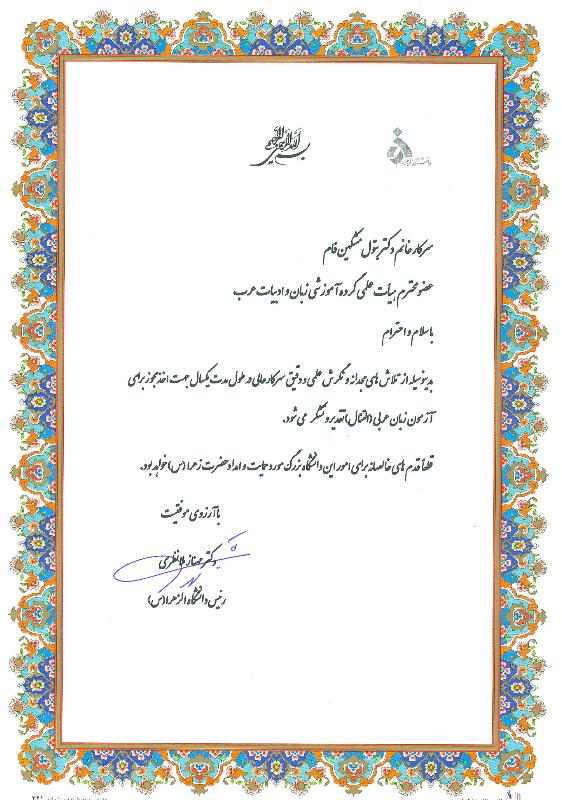 بسم الله الرحمن الرحیم
دانشگاه الزهرا
سرکار خانم دکتر بتول مشکین فام
عضو محترم هیأت علمی گروه آموزشی زبان و ادبیات عرب
با سلام و احترام
بدینوسیله از تلاش های مجدانه و نگرش علمی و دقیق سرکارعالی در طول مدت یکسال جهت اخذ مجوز برای
آزمون زبان عربی (التنال) تقدیر و تشکر می شود.
قطعاً قدم های خالصانه برای امور این دانشگاه بزرگ مورد حمایت و امداد حضرت زهرا (س) خواهد بود.
با آرزوی موفقیت
دکتر مهناز ملانظری
رئیس دانشگاه الزهرا (س)